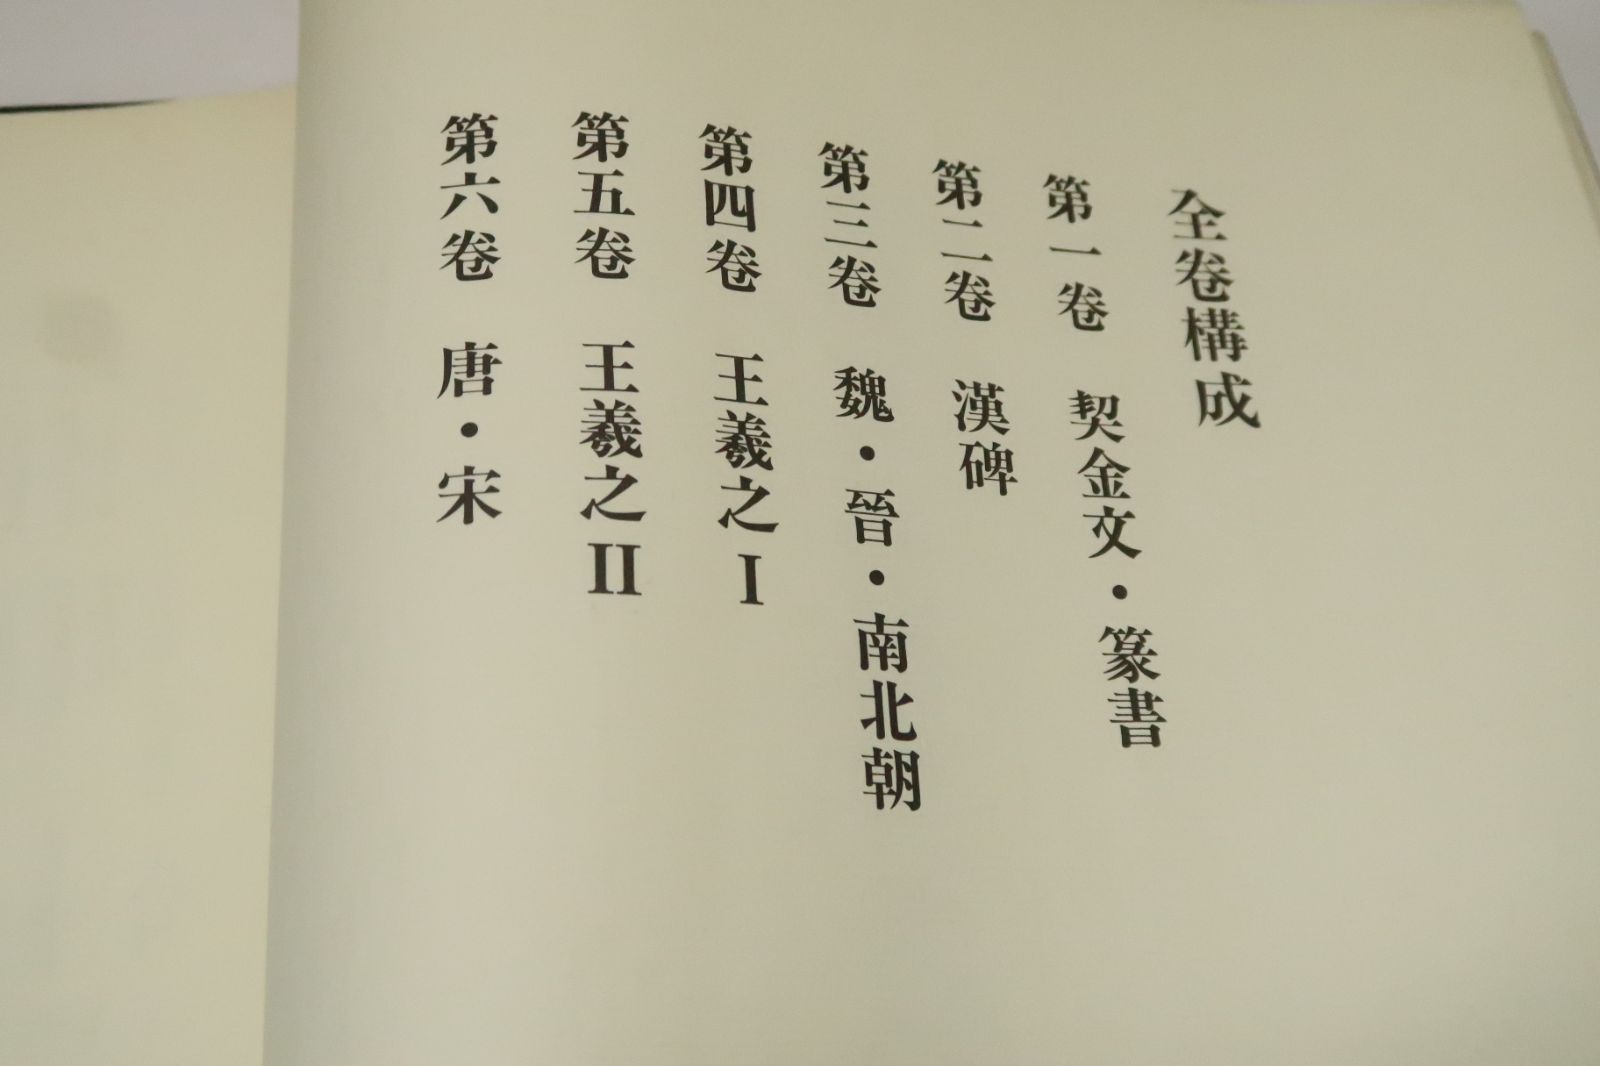 全卷構成
第一卷　契金文・篆書
第二卷　漢碑
第三卷　魏・晉・南北朝
第四卷　王羲之 I
第五卷　王羲之 II
第六卷　唐・宋